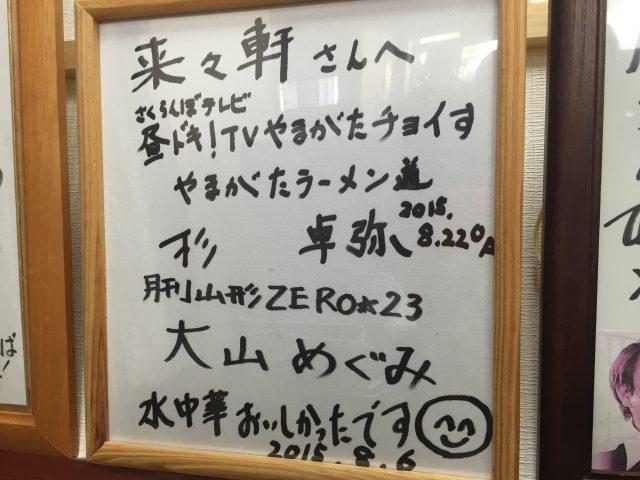 来々軒さんへ
さくらんぼテレビ
昼ドキ!TVやまがたチョイす
やまがたラーメン道
2015.
杉 卓弥 8.22OA
月刊山形ZERO☆23
大山めぐみ
水中華おいしかったです
2015.8.6